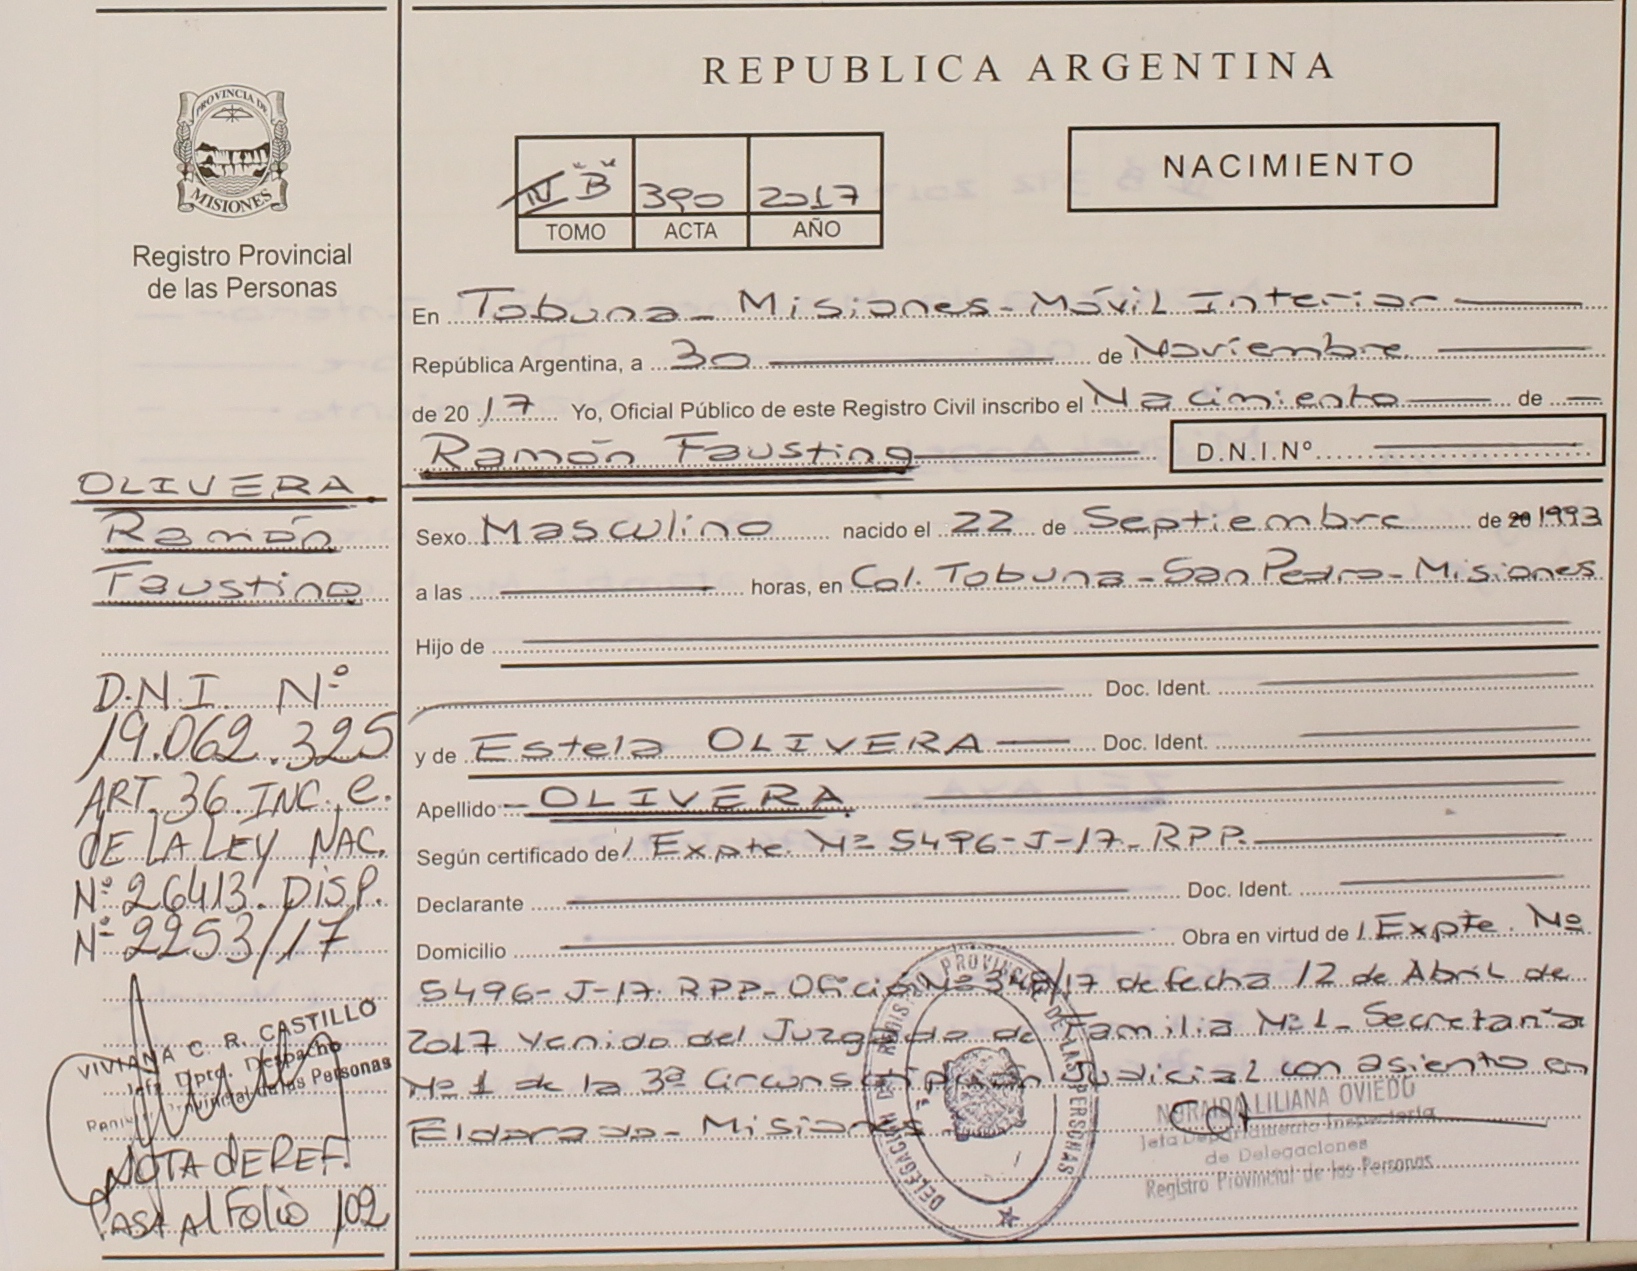 REPUBLICA ARGENTINA
PROVINCIA DE
MISIONES
Registro Provincial
de las Personas
NACIMIENTO
IV "B" 390 2017
TOMO ACTA AÑO
En Tobuna - Misiones - Móvil Interior
República Argentina, a 30 de Noviembre
de 2017 Yo, Oficial Público de este Registro Civil inscribo el Nacimiento de
Ramón Faustino D.N.I.Nº
Sexo Masculino nacido el 22 de Septiembre de 20 1993
a las horas, en Col. Tobuna - San Pedro - Misiones
Hijo de
Doc. Ident.
y de Estela OLIVERA Doc. Ident.
Apellido - OLIVERA
Según certificado de / Expte. Nº 5496-J-17- RPP.
Declarante Doc. Ident.
Domicilio Obra en virtud de / Expte. Nº
5496-J-17. RPP- Oficio Nº 348/17 de fecha 12 de Abril de
2017 venido del Juzgado de Familia Nº1- Secretaría
Nº 1 de la 3ª Circunscripción Judicial con asiento en
Eldorado - Misiones
OLIVERA
Ramón
Faustino
D.N.I. Nº
19.062.325
ART. 36 INC. e.
DE LA LEY NAC.
Nº 26413. DISP.
Nº 2253/17
VIVIANA C. R. CASTILLO
Jefa Dpto. Despacho
Provincial de las Personas
NOTA dE REF.
PASA Al Folio 102
DELEGACION DE REGISTRO PROVINCIAL DE LAS PERSONAS
LILIANA OVIEDO
Jefa Departamento Inspectoría
de Delegaciones
Registro Provincial de las Personas